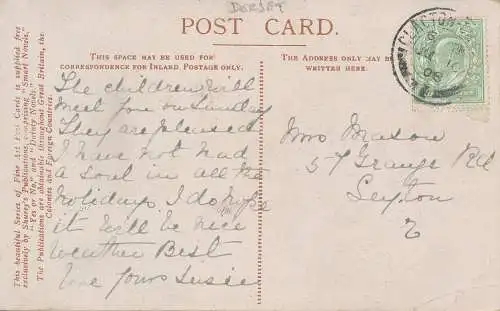 DORSET
POST CARD.
THIS SPACE MAY BE USED FOR
CORRESPONDENCE FOR INLAND POSTAGE ONLY.
THE ADDRESS ONLY MAY BE
WRITTEN HERE.
This beautiful Series of Fine Art Post Cards is supplied free
exclusively by Shurey's Publications, comprising "Smart Novels,"
"Yes or No," and "Dainty Novels."
The Publications are obtainable throughout Great Britain, the
Colonies and Foreign Countries.
The children will
meet you on Sunday
They are pleased
I have not had
a soul in all the
holidays I do hope
it will be nice
weather Best
love yours Susie
Mrs Mason
57 Grange Rd
Leyton
CLACTON